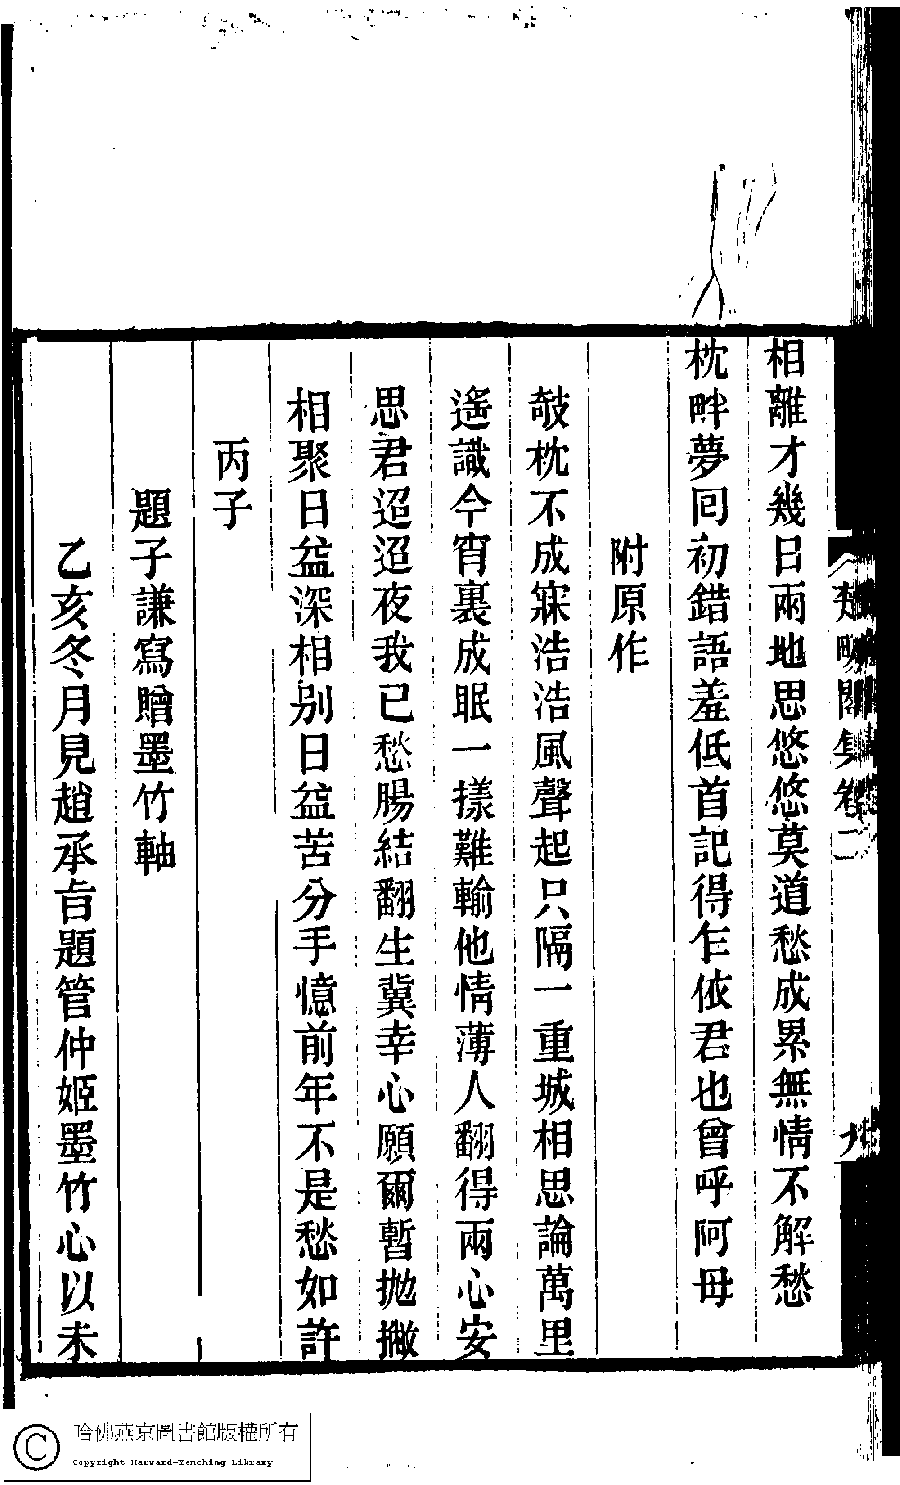 相離才幾日兩地思悠悠莫道愁成累無情不解愁
枕畔夢回初錯語羞低首記得乍依君也曾呼阿母
附原作
敧枕不成寐浩浩風聲起只隔一重城相思論萬里
遙識今宵裏成眠一㨾難輸他情薄人翻得兩心安
思君迢迢夜我已愁腸結翻生冀幸心願爾暫拋撇
相聚日益深相别日益苦分手憶前年不是愁如許
丙子
題子謙寫贈墨竹軸
乙亥冬月見趙承旨題管仲姬墨竹心以未
集卷二
哈佛燕京圖書館版權所有
Copyright Harvard-Yenching Library